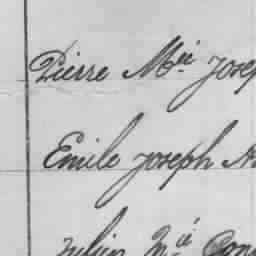 Pierre M.ie Josep
Emile Joseph A
Julien M.ie Con